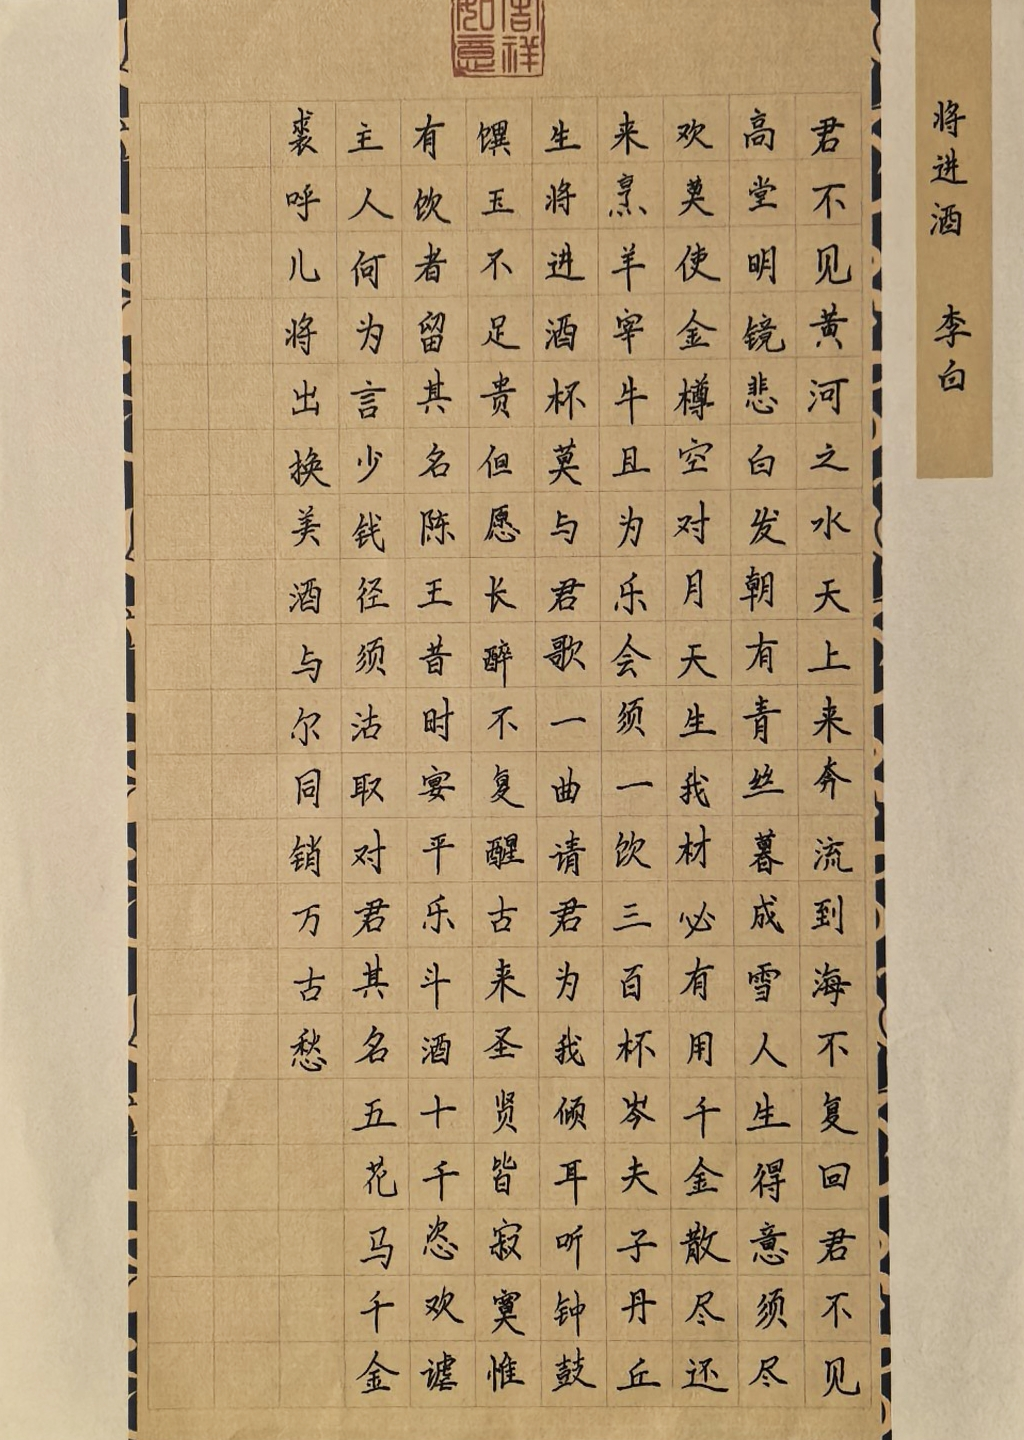 将进酒 李白
吉祥
如意
君不见黄河之水天上来奔流到海不复回君不见
高堂明镜悲白发朝有青丝暮成雪人生得意须尽
欢莫使金樽空对月天生我材必有用千金散尽还
来烹羊宰牛且为乐会须一饮三百杯岑夫子丹丘
生将进酒杯莫与君歌一曲请君为我倾耳听钟鼓
馔玉不足贵但愿长醉不复醒古来圣贤皆寂寞惟
有饮者留其名陈王昔时宴平乐斗酒十千恣欢谑
主人何为言少钱径须沽取对君其名五花马千金
裘呼儿将出换美酒与尔同销万古愁